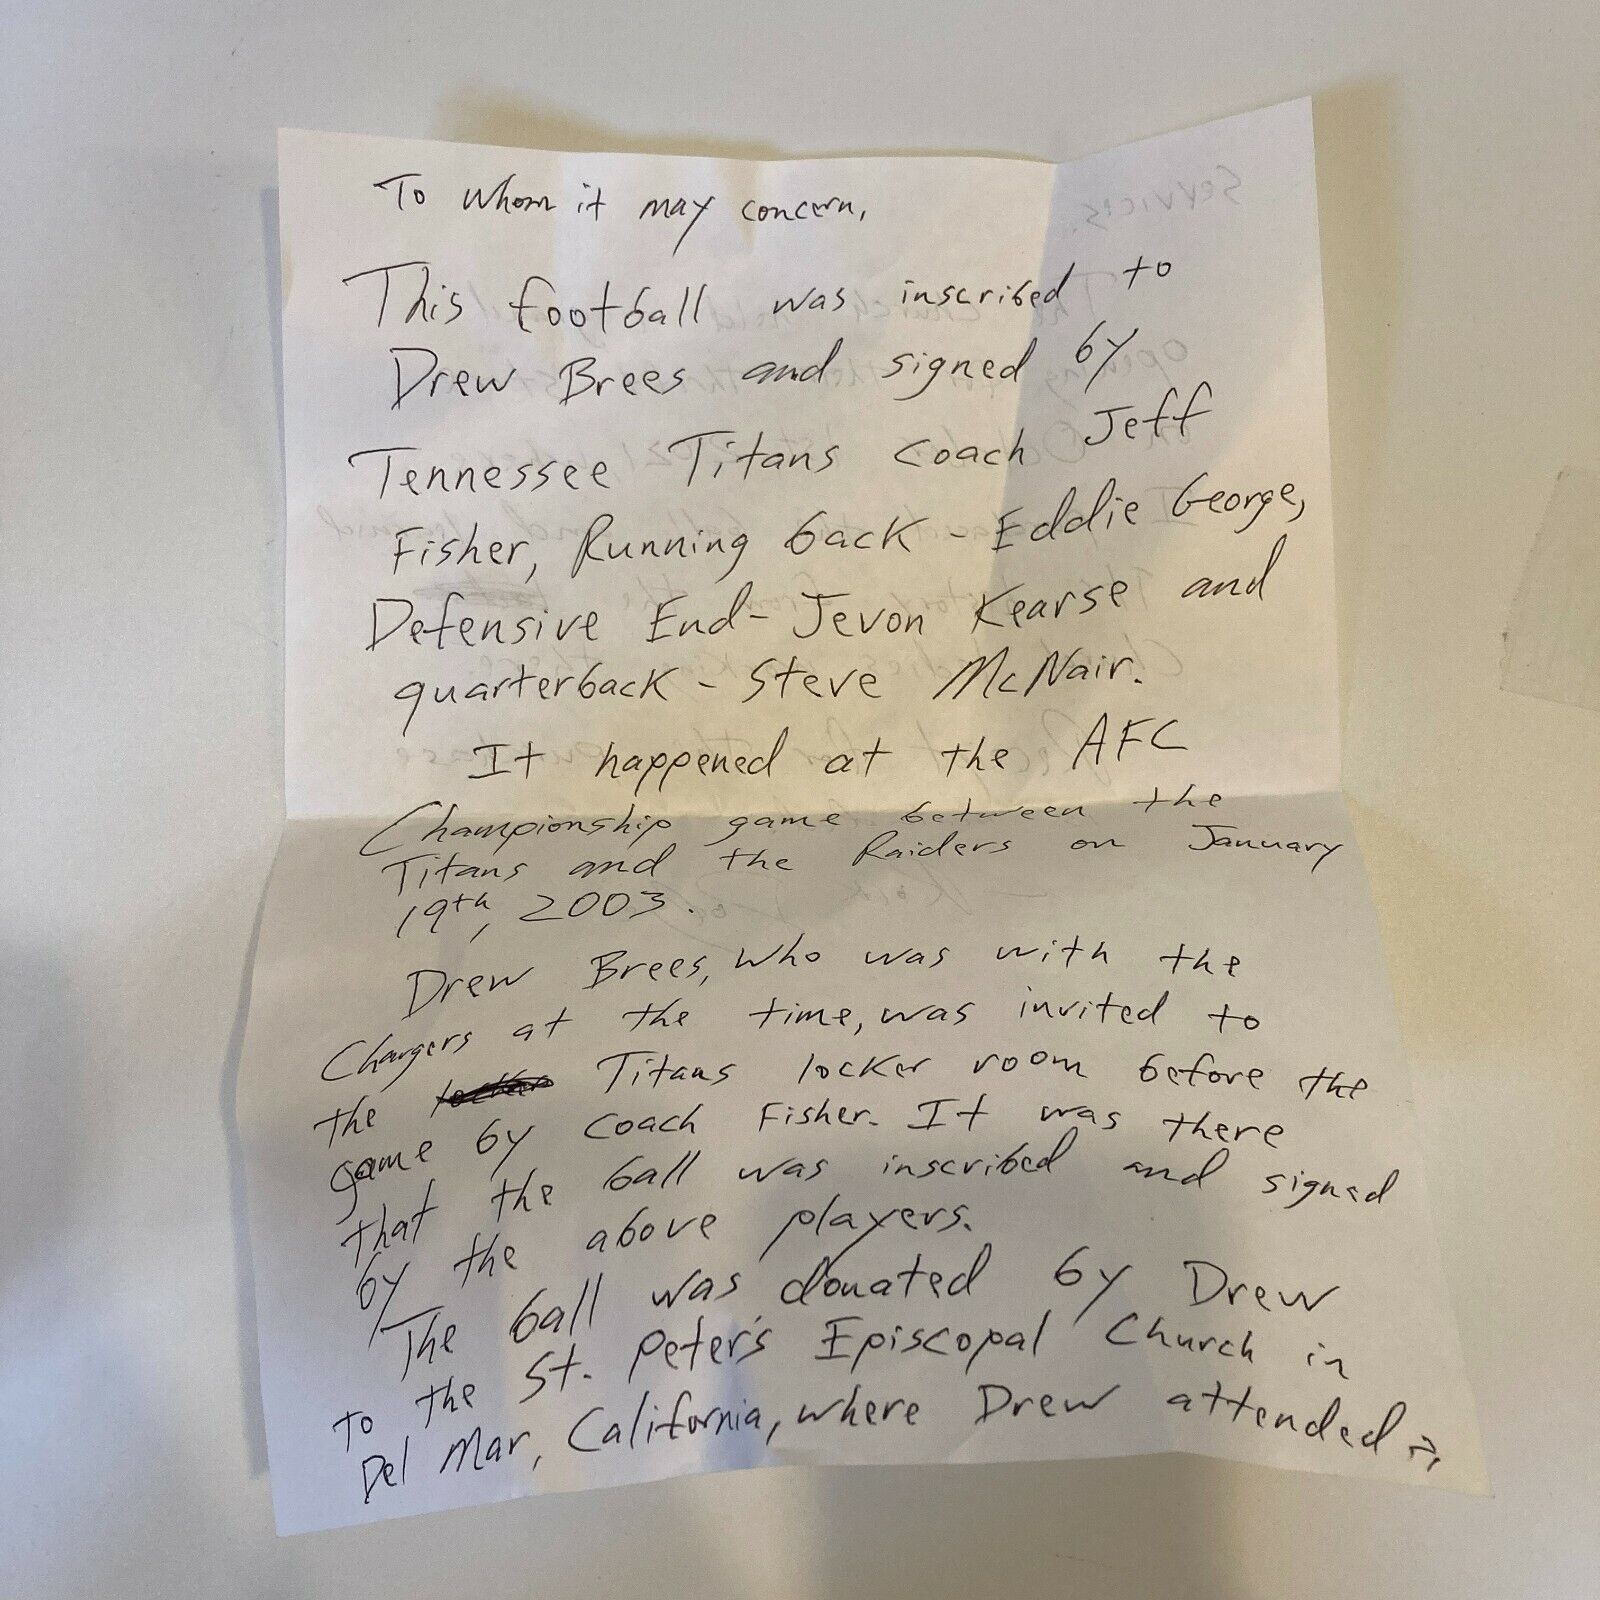 To whom it may concern,
This football was inscribed to
Drew Brees and signed by
Tennessee Titans coach Jeff
Fisher, Running back - Eddie George,
Defensive End - Jevon Kearse and
quarterback - Steve McNair.
It happened at the AFC
Championship game between the
Titans and the Raiders on January
19th, 2003.
Drew Brees, who was with the
Chargers at the time, was invited to
the Titans locker room before the
game by coach Fisher. It was there
that the ball was inscribed and signed
by the above players.
The ball was donated by Drew
to the St. Peter's Episcopal Church in
Del Mar, California, where Drew attended →
services.